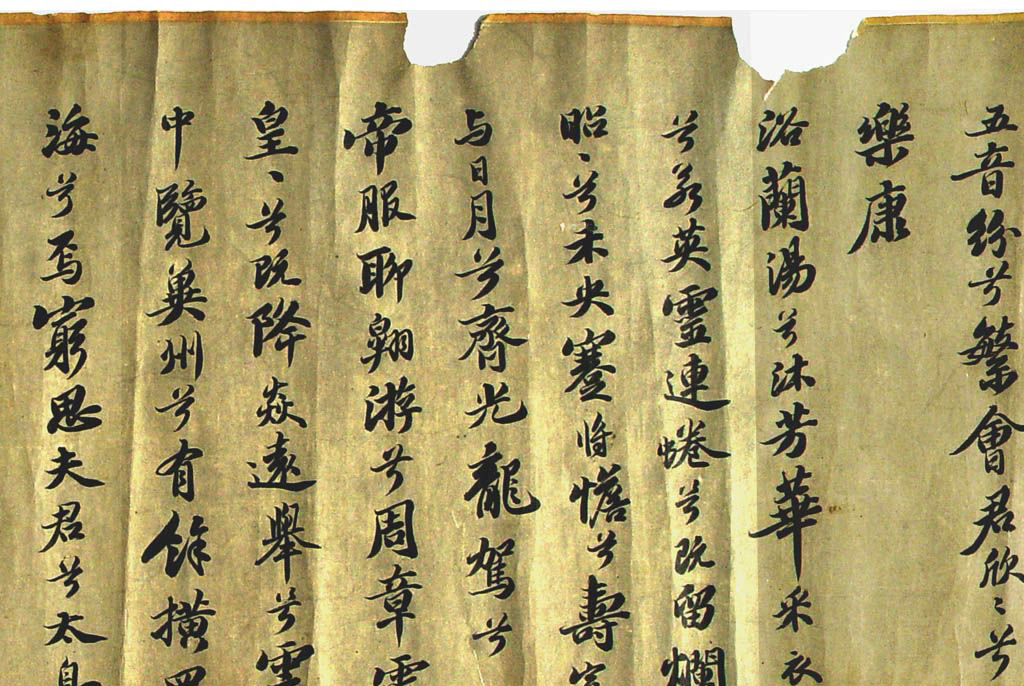 五音紛兮繁會君欣〻兮
樂康
浴蘭湯兮沐芳華采衣
兮若英靈連蜷兮既留爛
昭〻兮未央蹇將憺兮壽宮
与日月兮齊光龍駕兮
帝服聊翱游兮周章靈
皇〻兮既降焱遠舉兮雲
中覽冀州兮有餘橫四
海兮焉窮思夫君兮太息